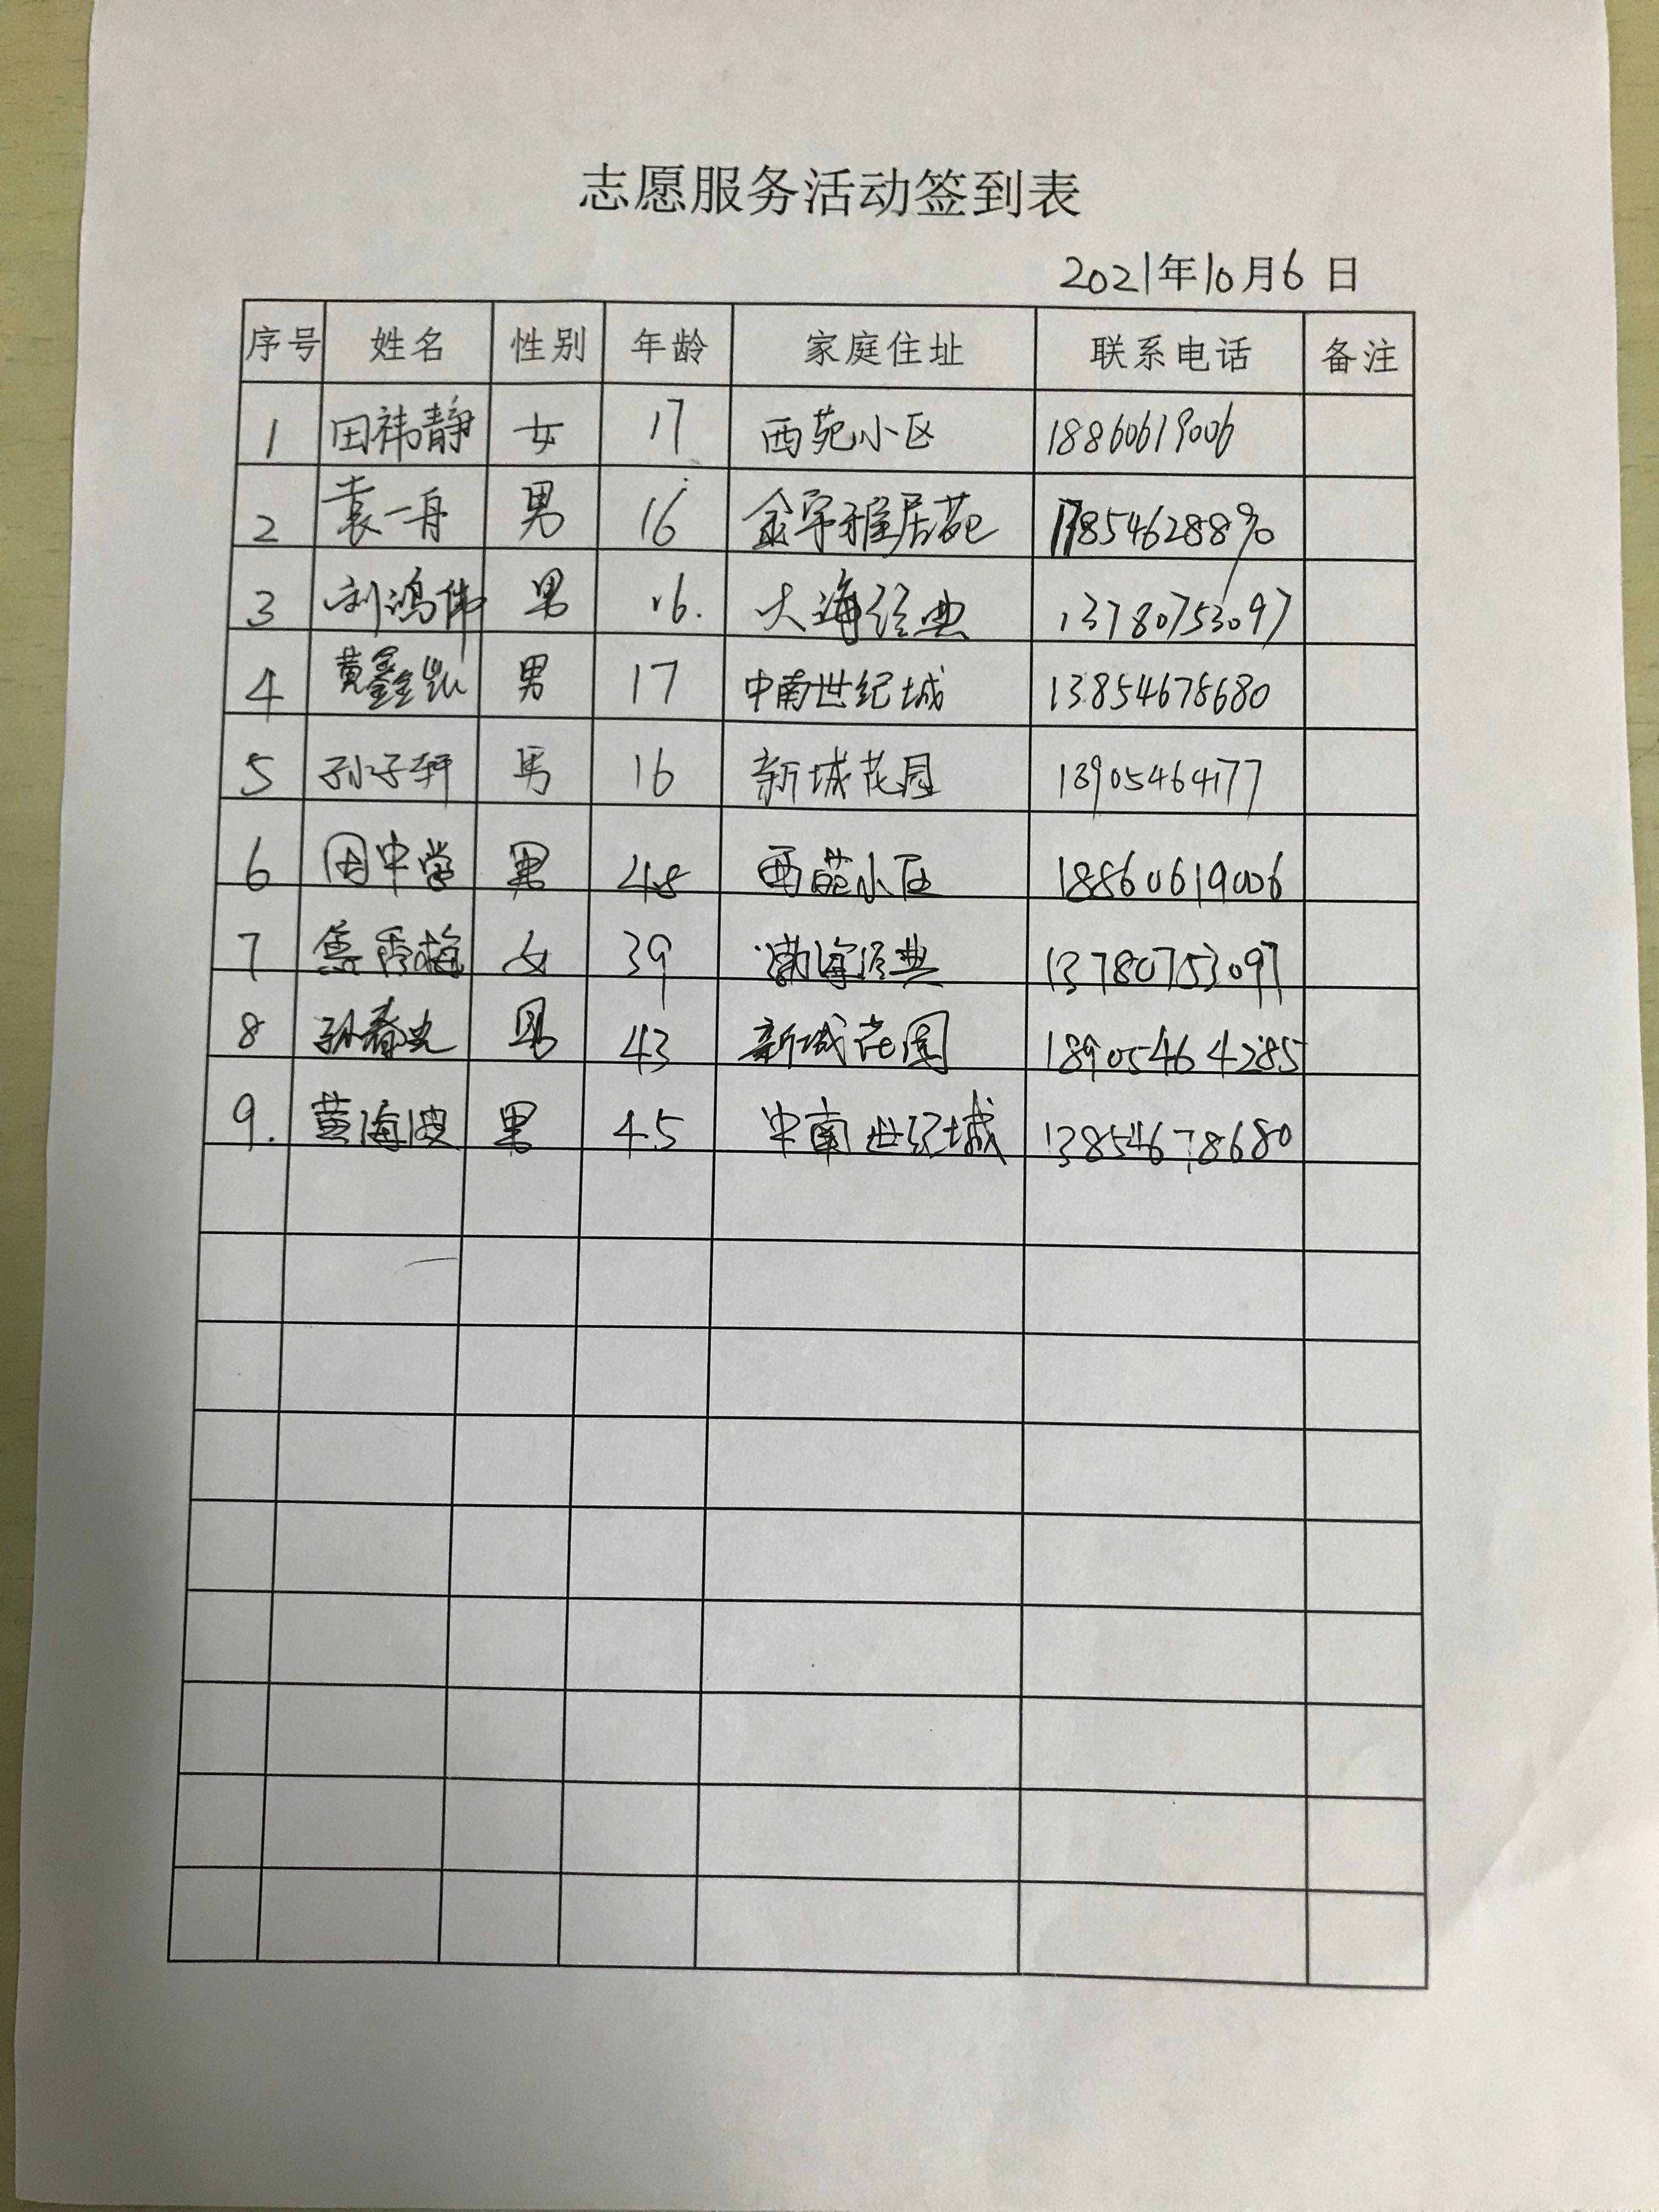 志愿服务活动签到表
2021年10月6日
序号 姓名 性别 年龄 家庭住址 联系电话 备注
1 田祎静 女 17 西苑小区 18860619006
2 袁一舟 男 16 金宇雅居苑 17854628890
3 刘鸿伟 男 16. 大海经典 13780753097
4 黄鑫凯 男 17 中南世纪城 13854678680
5 孙子轩 男 16 新城花园 18905464177
6 田中学 男 48 西苑小区 18860619006
7 秀梅 女 39 渤海经典 13780753097
8 孙春光 男 43 新城花园 18905464285
9. 黄海波 男 45 中南世纪城 13854678680